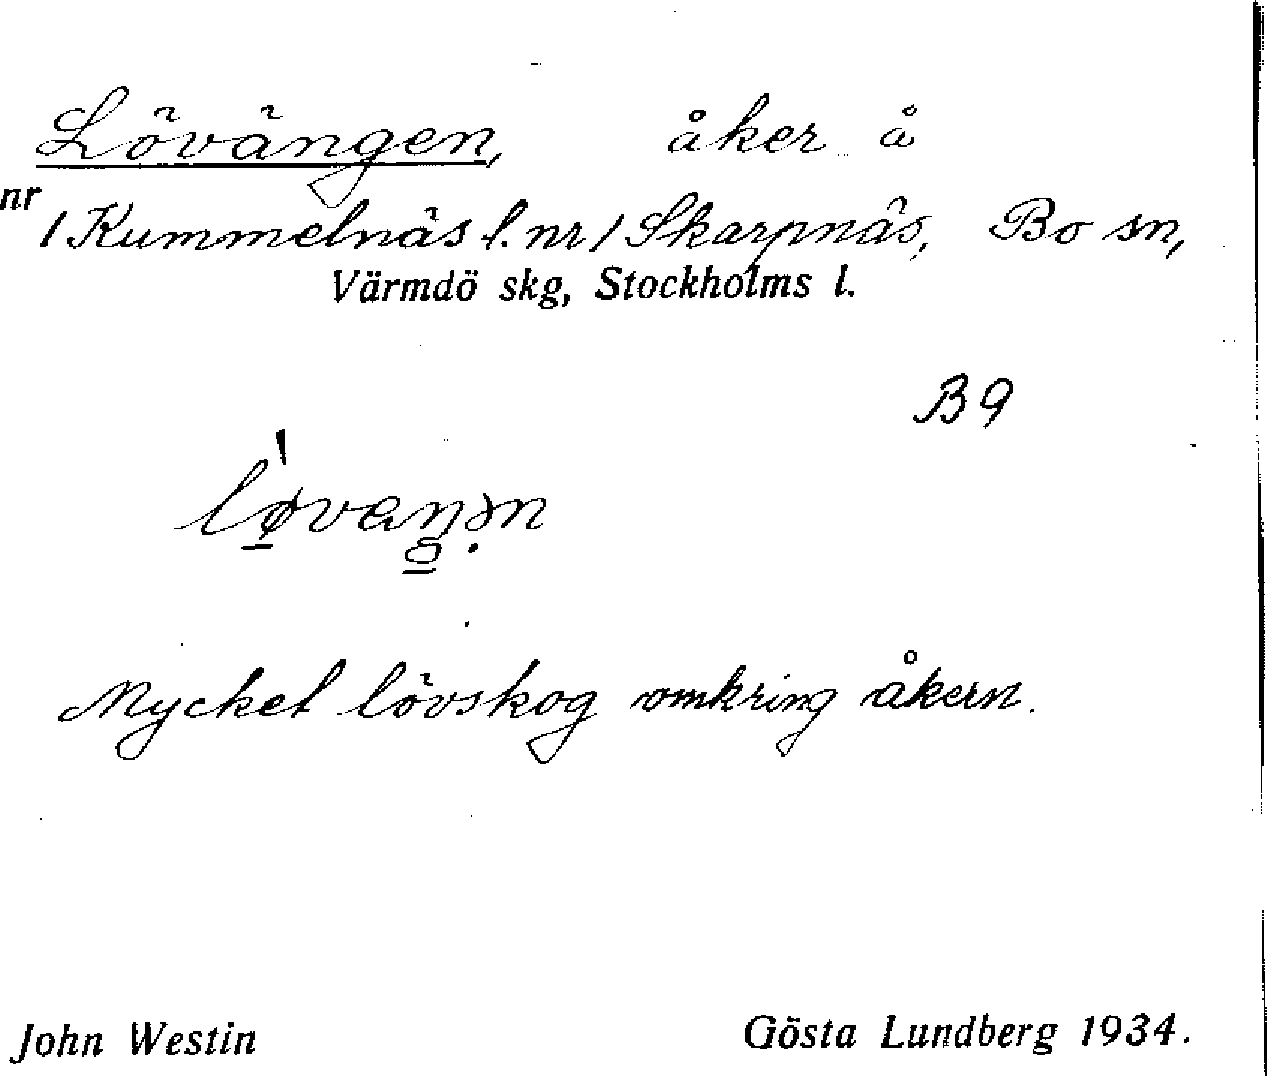 Lövängen, åker å
nr 1 Kummelnäs l. nr 1 Skarpnäs, Bo sn,
Värmdö skg, Stockholms l.
B9
Mycket lövskog omkring åkern.
John Westin Gösta Lundberg 1934.